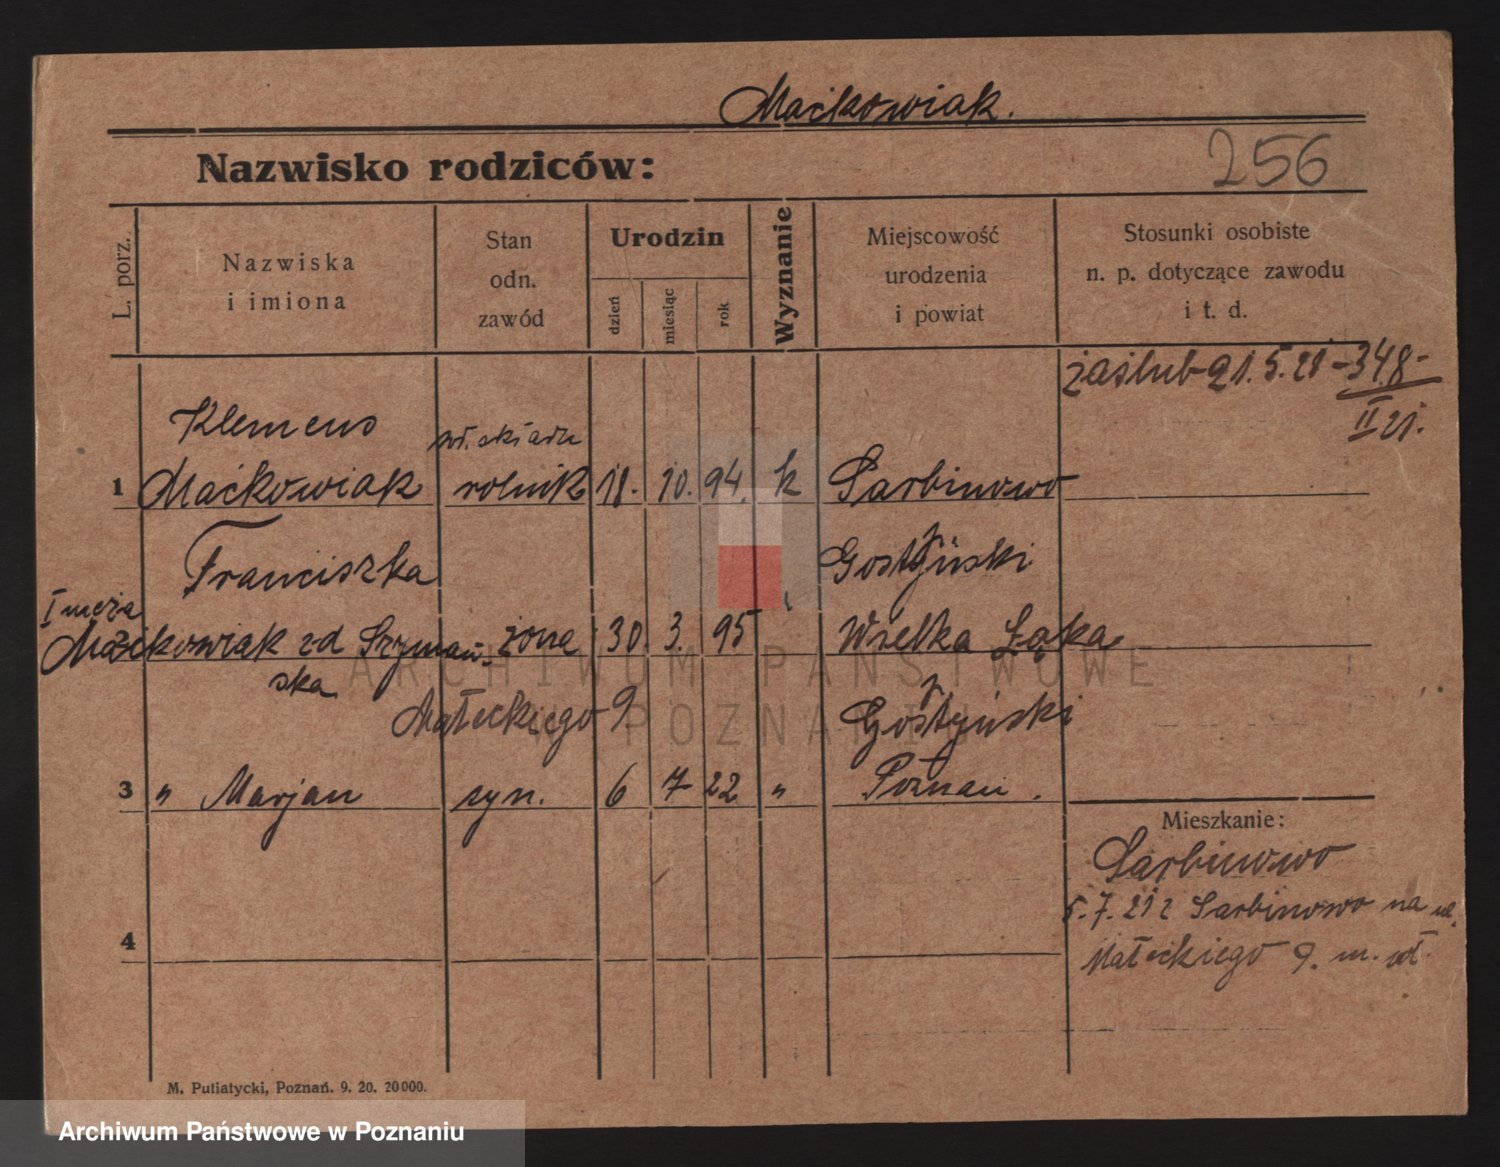 Maćkowiak.
Nazwisko rodziców:
256
L. porz.
Nazwiska
i imiona
Stan
odn.
zawód
Urodzin
dzień
miesiąc
rok
Wyznanie
Miejscowość
urodzenia
i powiat
Stosunki osobiste
n. p. dotyczące zawodu
i t. d.
zaślub 21.5.21 - 348-
II 21.
Klemens
wł. składu
1 Maćkowiak rolnik 11. 10. 94. k Sarbinowo
Franciszka Gostyński
I męża
Maćkowiak zd Szymań- żona 30. 3. 95 Wielka Łąka
ska
Małeckiego 9 Gostyński
3 " Marjan syn. 6 7 22 " Poznań.
Mieszkanie:
Sarbinowo
5.7.21 z Sarbinowo na ul.
4
Małeckiego 9. m. wł.
M. Putiatycki, Poznań. 9. 20. 20000.
ARCHIWUM PAŃSTWOWE
W POZNANIU
Archiwum Państwowe w Poznaniu